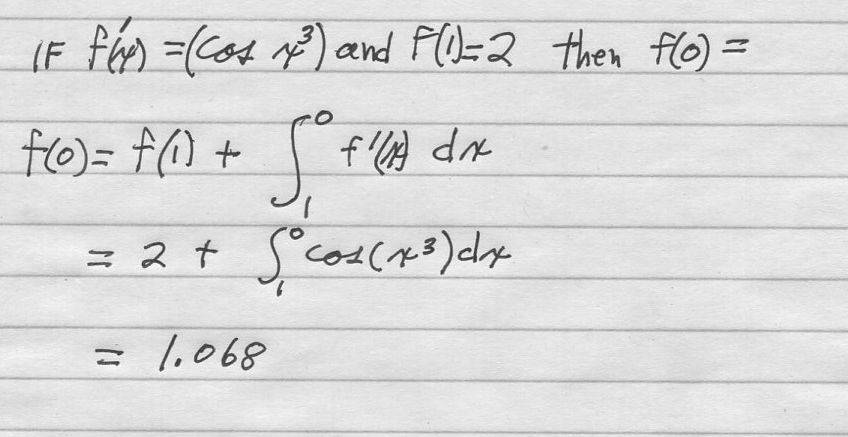 IF f'(x) = (cos x³) and F(1)=2 then f(0) =
f(0) = f(1) + ∫₁⁰ f'(x) dx
= 2 + ∫₁⁰ cos(x³) dx
= 1.068